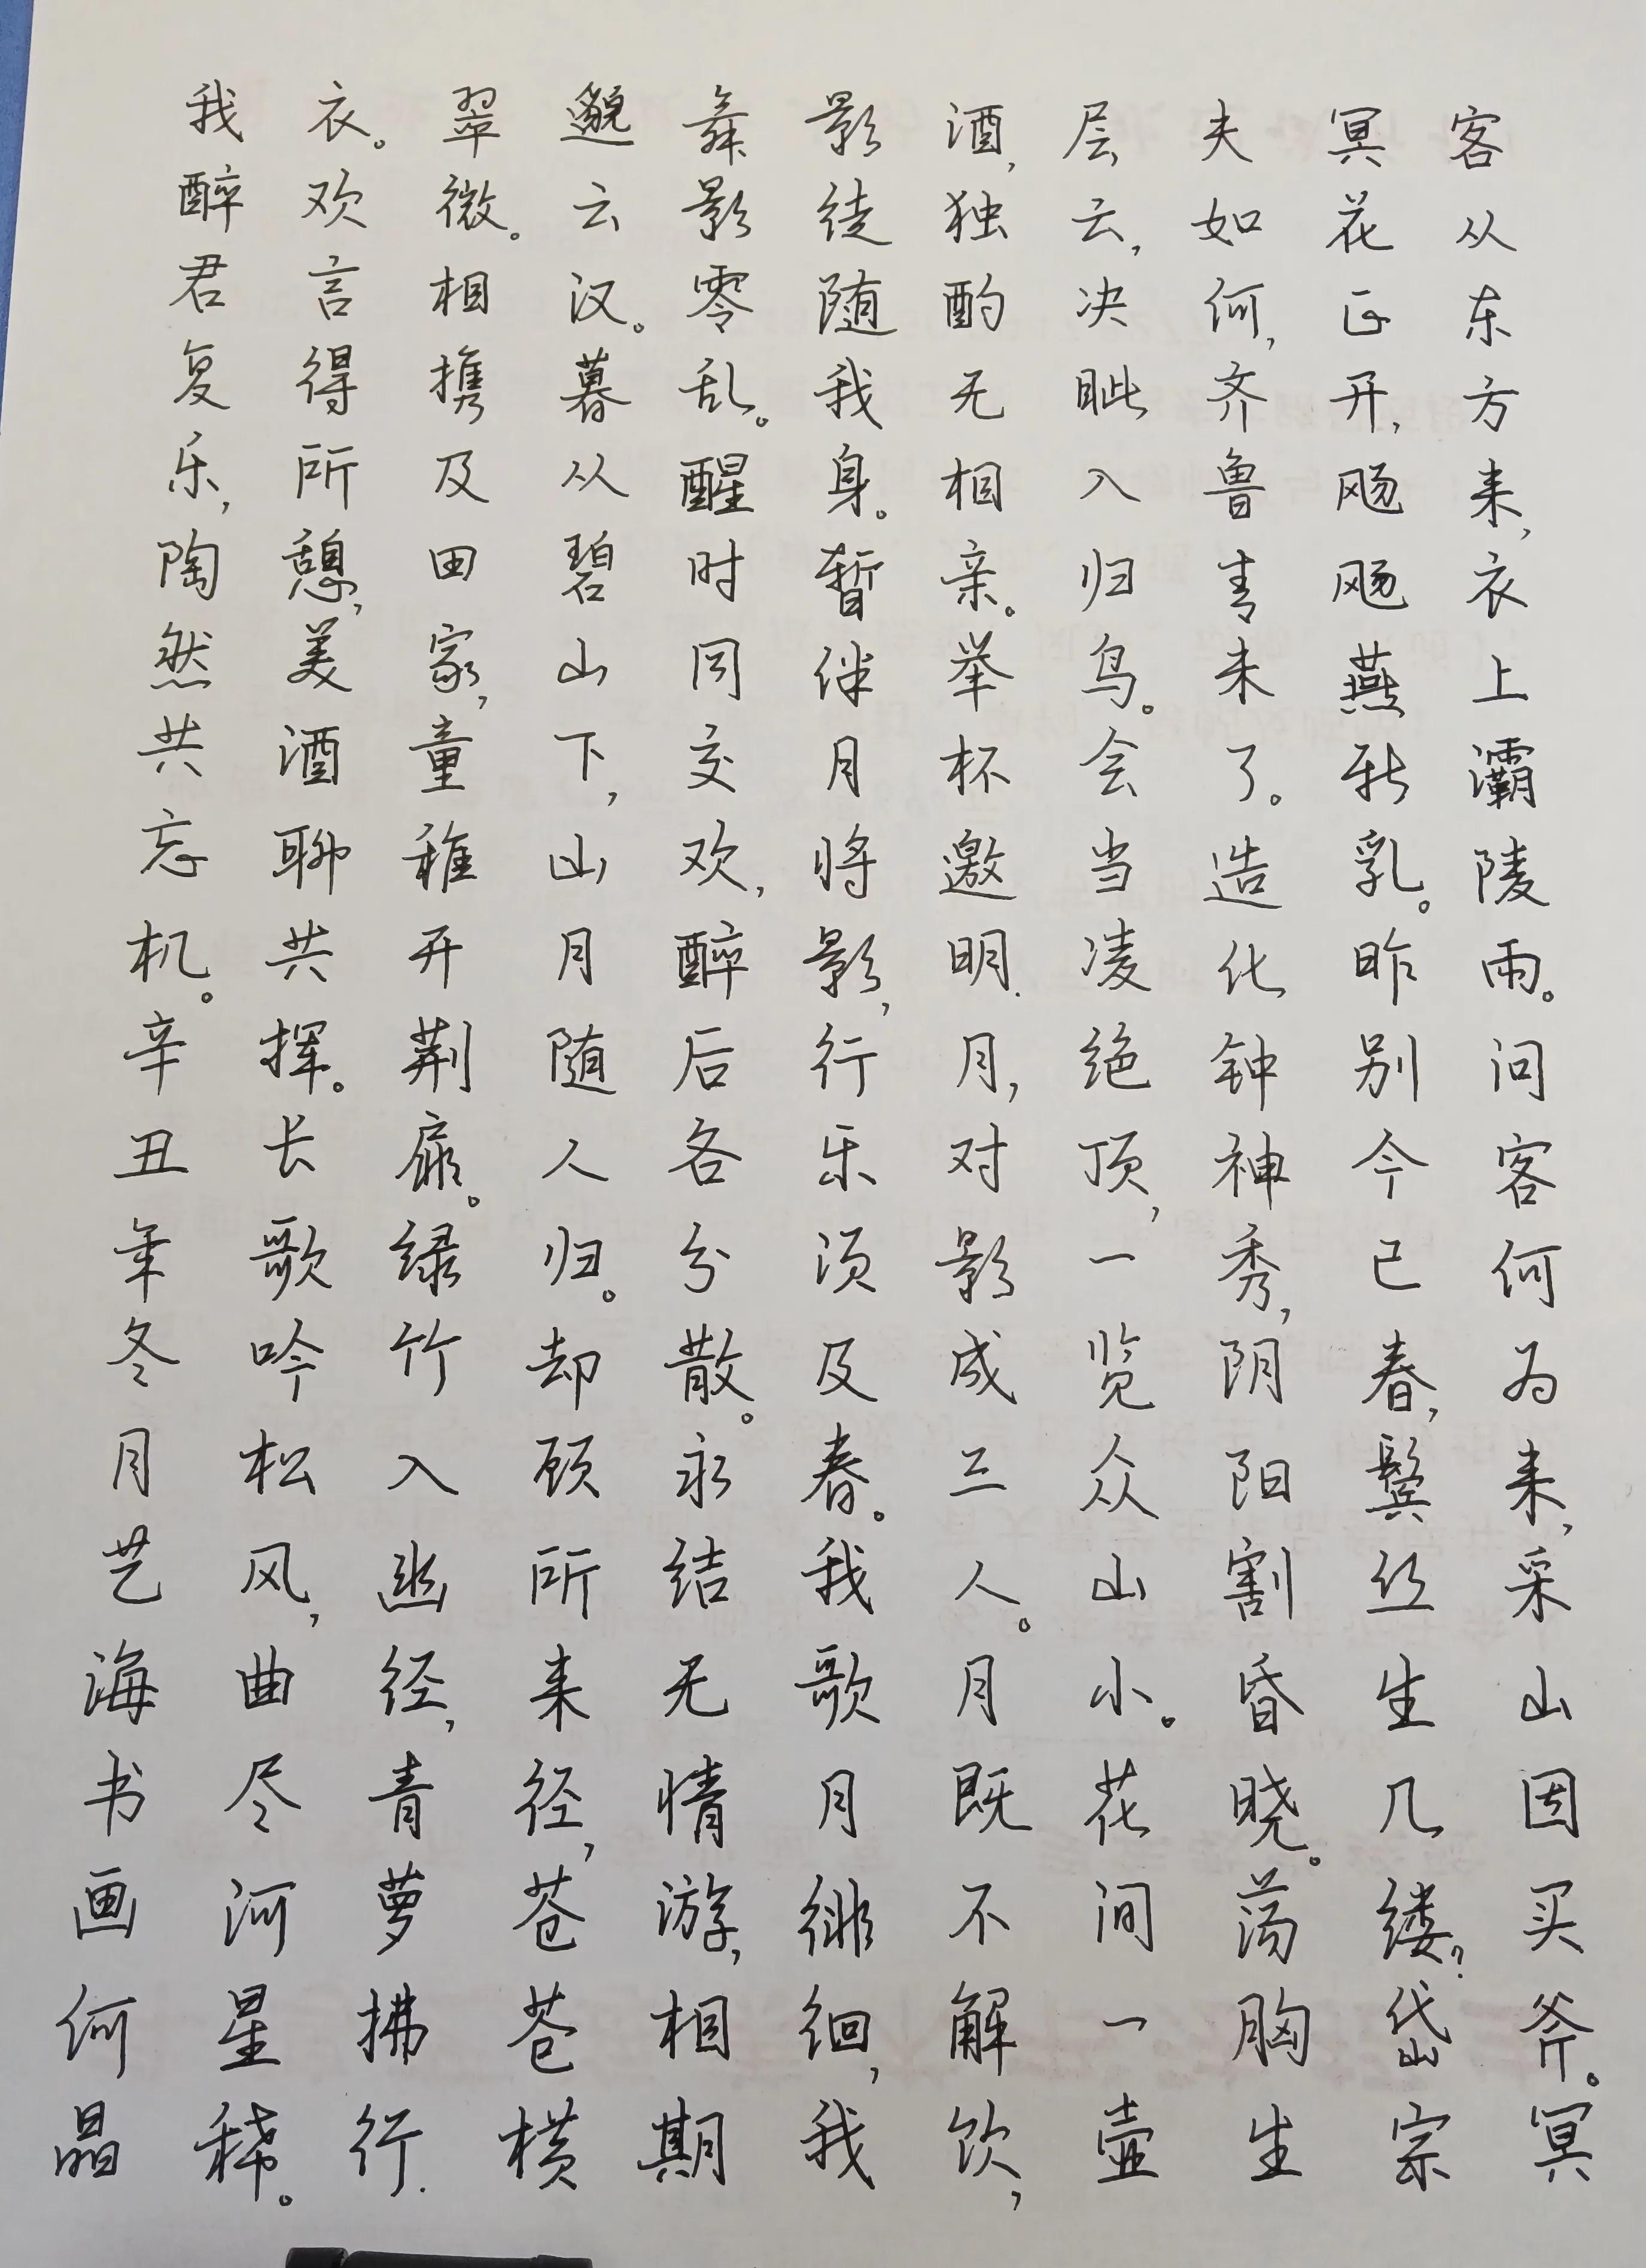 客从东方来,衣上灞陵雨。问客何为来,采山因买斧。冥
冥花正开,飏飏燕新乳。昨别今已春,鬓丝生几缕?岱宗
夫如何,齐鲁青未了。造化钟神秀,阴阳割昏晓。荡胸生
层云,决眦入归鸟。会当凌绝顶,一览众山小。花间一壶
酒,独酌无相亲。举杯邀明.月,对影成三人。月既不解饮,
影徒随我身。暂伴月将影,行乐须及春。我歌月徘徊,我
舞影零乱。醒时同交欢,醉后各分散。永结无情游,相期
邈云汉。暮从碧山下,山月随人归。却顾所来径,苍苍横
翠微。相携及田家,童稚开荆扉。绿竹入幽径,青萝拂行.
衣。欢言得所憩,美酒聊共挥。长歌吟松风,曲尽河星稀。
我醉君复乐,陶然共忘机。辛丑年冬月艺海书画何晶